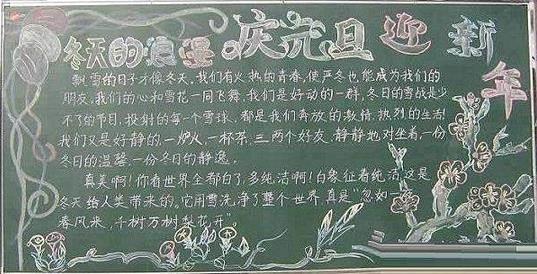 冬天的浪漫 庆元旦 迎新年
飘雪的日子才像冬天,我们有火热的青春,使严冬也能成为我们的
朋友,我们的心和雪花一同飞舞,我们是好动的一群,冬日的雪战是少
不了的节目,投射的每一个雪球,都是我们奔放的激情,热烈的生活!
我们又是好静的,一炉火,一杯茶,三两个好友,静静地对坐着,一份
冬日的温馨,一份冬日的静逸。
真美啊!你看世界全都白了,多纯洁啊!白象征着纯洁,这是
冬天给人类带来的。它用雪洗净了整个世界,真是“忽如一
春风来,千树万树梨花开”